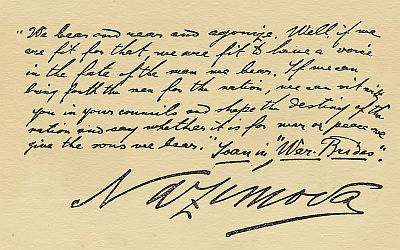 "We bear and rear and agonize. Well, if we
are fit for that, we are fit to have a voice
in the fate of the men we bear. If we can
bring forth the men for the nation, we can sit with
you in your councils and shape the destiny of the
nation and say whether it is for war or peace we
give the sons we bear." Joan in "War Brides".
Nazimova